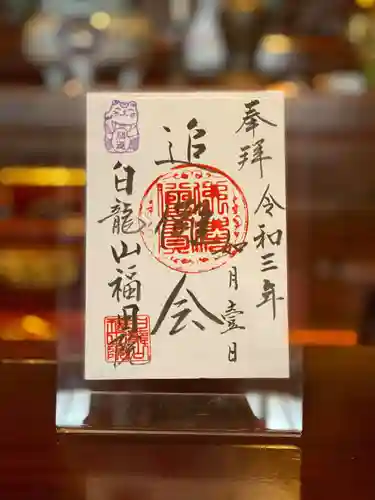 奉拝
令和三年
如月壹日
追儺会
白龍山福円院